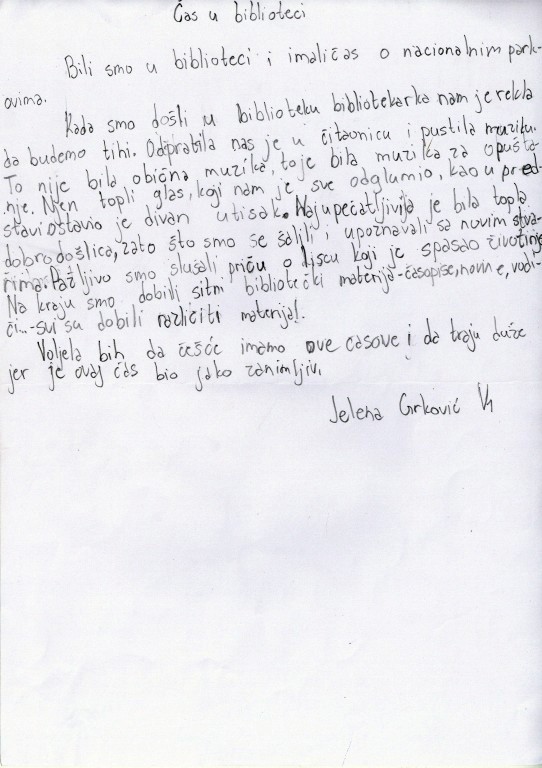 Čas u biblioteci
Bili smo u biblioteci i imali čas o nacionalnim park-
ovima.
Kada smo došli u biblioteku bibliotekarka nam je rekla
da budemo tihi. Odpratila nas je u čitaonicu i pustila muziku.
To nije bila obična muzika, to je bila muzika za opušta-
nje. Njen topli glas, koji nam je sve odglumio, kao u pred-
stavi ostavio je divan utisak. Najupečatljivija je bila topla
dobrodošlica, zato što smo se šalili i upoznavali sa novim stva-
rima. Pažljivo smo slušali priču o liscu koji je spasao životinje.
Na kraju smo dobili sitni bibliotečki materijal-časopise, novine, vodi-
či...-svi su dobili različiti materijal.
Voljela bih da češće imamo ove časove i da traju duže
jer je ovaj čas bio jako zanimljiv.
Jelena Grković V1